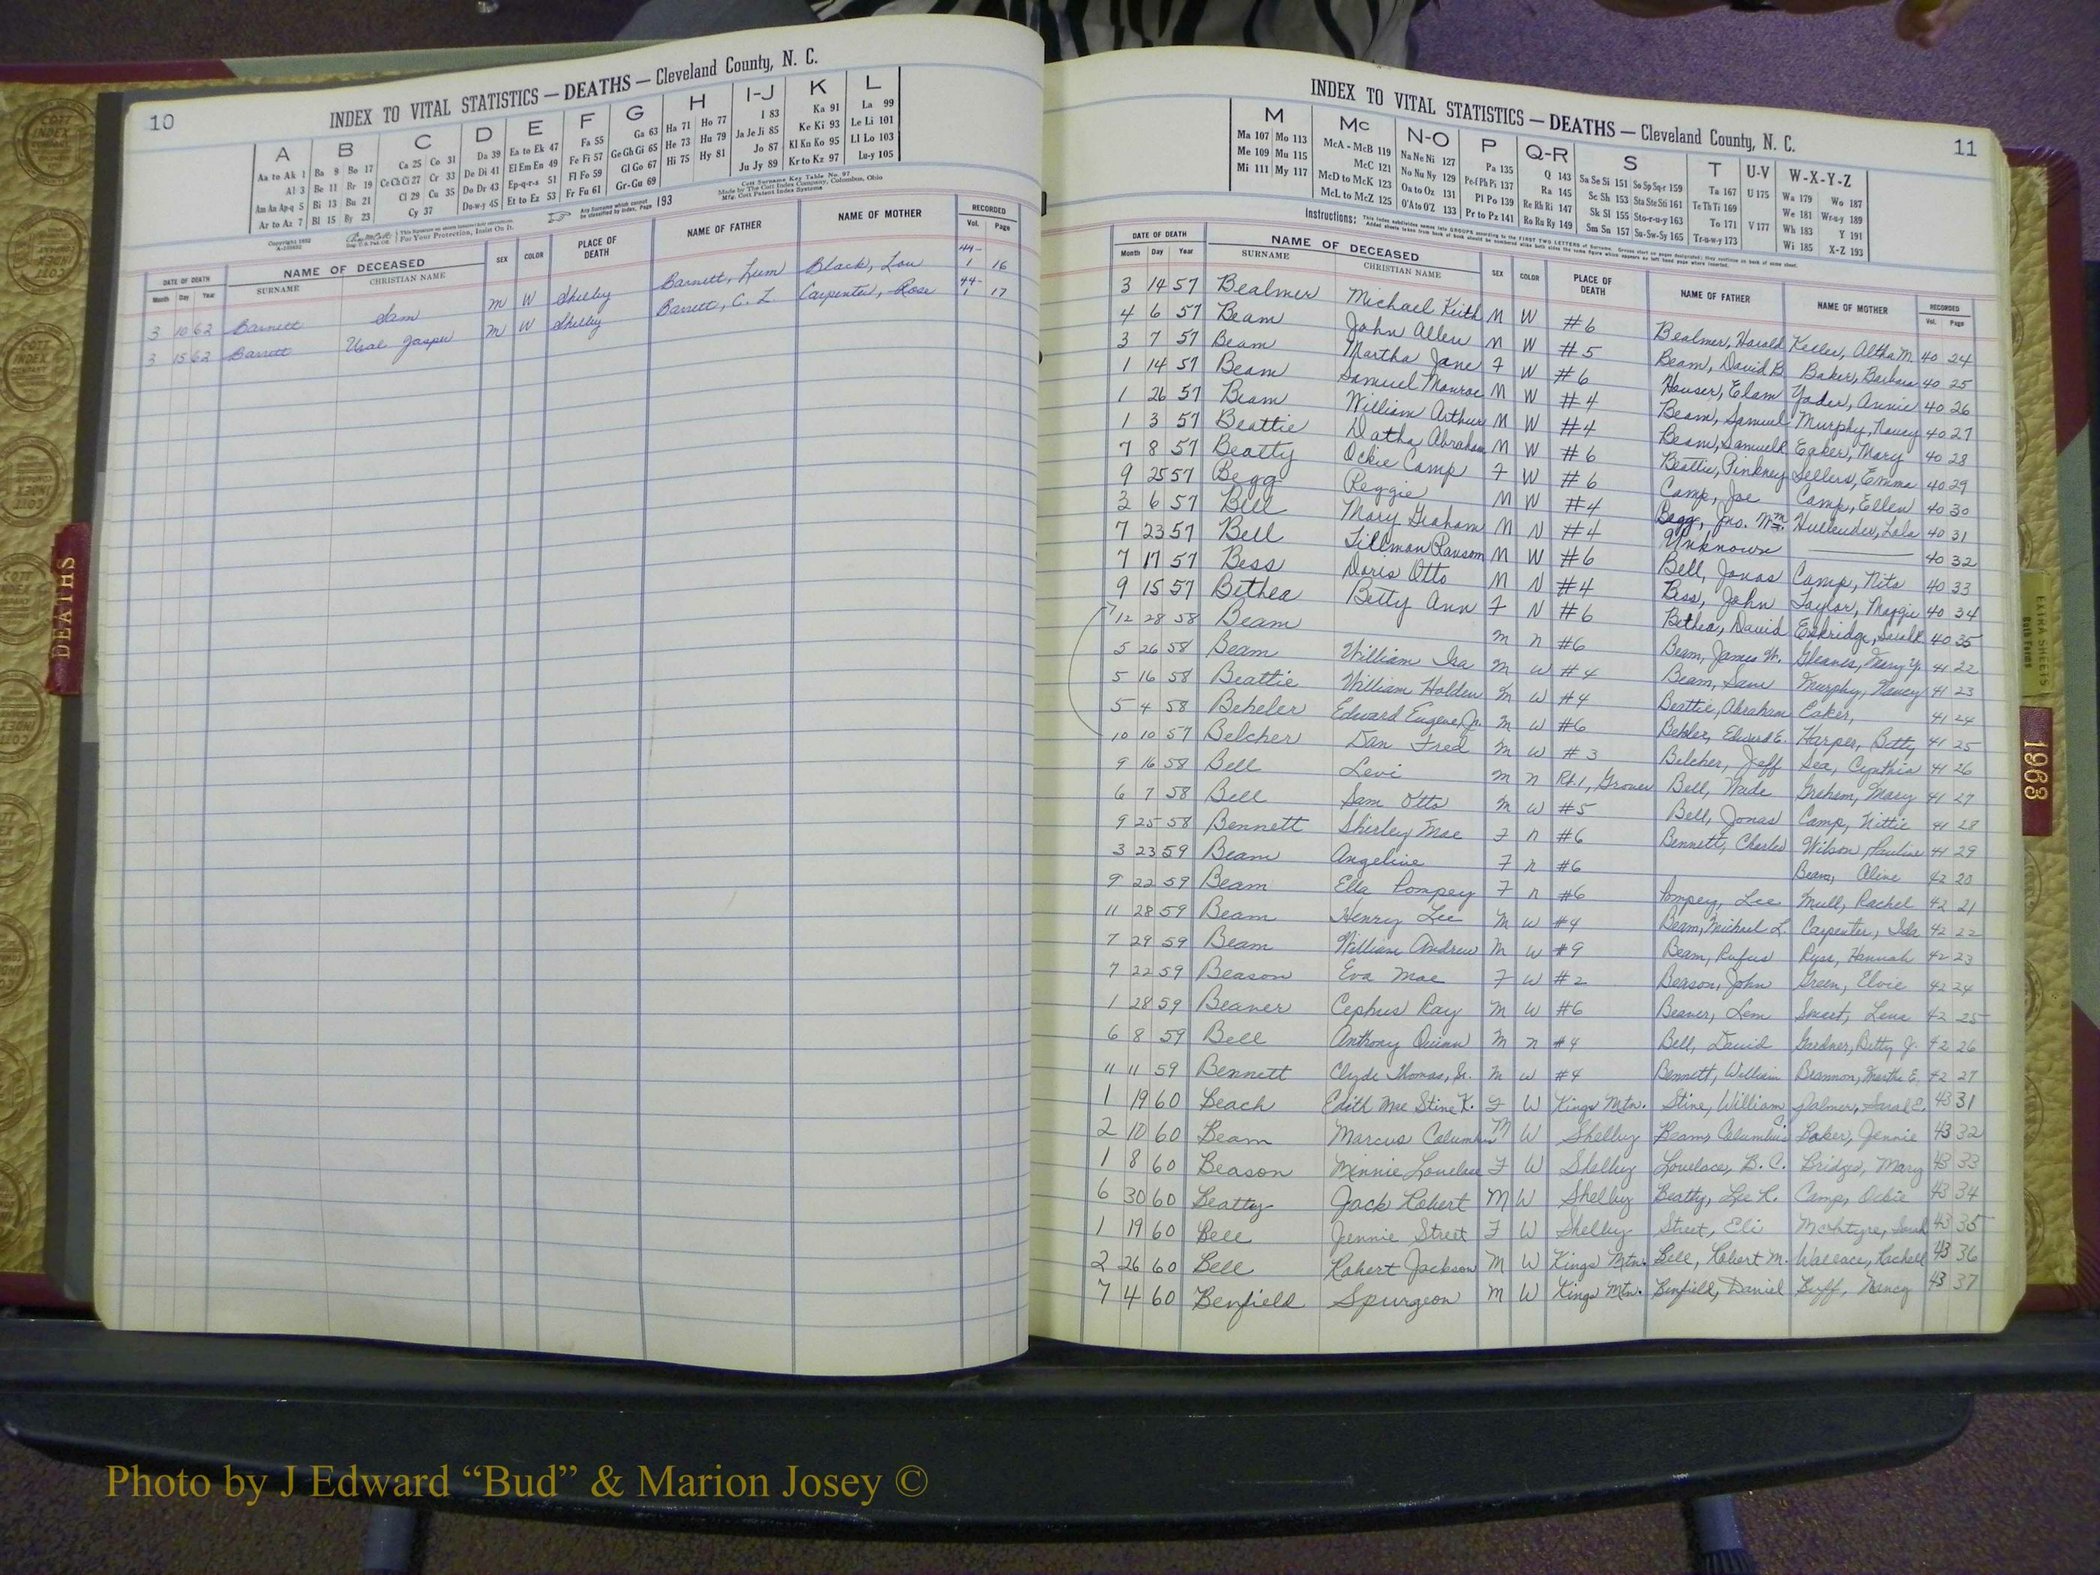 10
INDEX TO VITAL STATISTICS — DEATHS — Cleveland County, N. C.
A B C D E F G H I-J K L
Aa to Ak 1 Ba 9 Bo 17 Ca 25 Co 31 Da 39 Ea to Ek 47 Fa 55 Ga 63 Ha 71 Ho 77 I 83 Ka 91 La 99
Al 3 Be 11 Br 19 Ce Ch Ci 27 Cr 33 De Di 41 El Em En 49 Fe Fi 57 Ge Gh Gi 65 He 73 Hu 79 Ja Je Ji 85 Ke Ki 93 Le Li 101
Am An Ap-q 5 Bi 13 Bu 21 Cl 29 Cu 35 Do Dr 43 Ep-q-r-s 51 Fl Fo 59 Gl Go 67 Hi 75 Hy 81 Jo 87 Kl Kn Ko 95 Ll Lo 103
Ar to Az 7 Bl 15 By 23 Cy 37 Du-w-y 45 Et to Ez 53 Fr Fu 61 Gr-Gu 69 Ju Jy 89 Kr to Kz 97 Lu-y 105
Cott Surname Key Table No. 97
Made by The Cott Index Company, Columbus, Ohio
Mfg. Cott Patent Index Systems
Any Surname which cannot be classified by index, Page 193
For Your Protection, Insist On It.
DATE OF DEATH NAME OF DECEASED SEX COLOR PLACE OF DEATH NAME OF FATHER NAME OF MOTHER RECORDED
Month Day Year SURNAME CHRISTIAN NAME Vol. Page
3 10 62 Barnett Sam M W Shelby Barnett, Lum Black, Lou 44-1 16
3 15 62 Barrett Ural Jasper M W Shelby Barrett, C. L. Carpenter, Rose 44-1 17
11
INDEX TO VITAL STATISTICS — DEATHS — Cleveland County, N. C.
M Mc N-O P Q-R S T U-V W-X-Y-Z
Ma 107 Mo 113 McA - McB 119 Na Ne Ni 127 Pa 135 Q 143 Sa Se Si 151 So Sp Sq-r 159 Ta 167 U 175 Wa 179 Wo 187
Me 109 Mu 115 McC 121 No Nu Ny 129 Pe-f Ph Pi 137 Ra 145 Sc Sh 153 Sta Ste Sti 161 Te Th Ti 169 We 181 Wr-u-y 189
Mi 111 My 117 McD to McK 123 Oa to Oz 131 Pl Po 139 Re Rh Ri 147 Sk Sl 155 Sto-r-u-y 163 To 171 V 177 Wh 183 Y 191
McL to McZ 125 O'A to O'Z 133 Pr to Pz 141 Ro Ru Ry 149 Sm Sn 157 Su-Sw-Sy 165 Tr-u-w-y 173 Wi 185 X-Z 193
Instructions:
DATE OF DEATH NAME OF DECEASED SEX COLOR PLACE OF DEATH NAME OF FATHER NAME OF MOTHER RECORDED
Month Day Year SURNAME CHRISTIAN NAME Vol. Page
3 14 57 Bealmer Michael Keith M W #6 Bealmer, Harold Keller, Altha M 40 24
4 6 57 Beam John Allen M W #5 Beam, David B. Baker, Barbara 40 25
3 7 57 Beam Martha Jane F W #6 Houser, Elam Yoder, Annie 40 26
1 14 57 Beam Samuel Monroe M W #4 Beam, Samuel Murphy, Nancy 40 27
1 26 57 Beam William Arthur M W #4 Beam, Samuel R Eaker, Mary 40 28
1 3 57 Beattie Datha Abraham M W #6 Beattie, Pinkney Sellers, Emma 40 29
7 8 57 Beatty Ockie Camp F W #6 Camp, Joe Camp, Ellen 40 30
9 25 57 Begg Reggie M W #4 Begg, Jno. Wm. Hullender, Lola 40 31
3 6 57 Bell Mary Graham M N #4 Unknown 40 32
7 23 57 Bell Tillman Ransom M W #6 Bell, Jonas Camp, Nita 40 33
7 17 57 Bess Doris Otto M N #4 Bess, John Taylor, Maggie 40 34
9 15 57 Bethea Betty Ann F N #6 Bethea, David Eskridge, Sarah 40 35
12 28 58 Beam M n #6 Beam, James W. Gleaves, Mary Y. 41 22
5 26 58 Beam William Ira M W #4 Beam, Sam Murphy, Nancy 41 23
5 16 58 Beattie William Holden M W #4 Beattie, Abraham Eaker, 41 24
5 4 58 Beheler Edward Eugene, Jr. M W #6 Beheler, Edward E. Harper, Betty 41 25
10 10 57 Belcher Dan Fred M W #3 Belcher, Jeff Lea, Cynthia 41 26
9 16 58 Bell Levi M n Rt. 1, Grover Bell, Wade Graham, Mary 41 27
6 7 58 Bell Sam Otto M W #5 Bell, Jonas Camp, Nittie 41 28
9 25 58 Bennett Shirley Mae F n #6 Bennett, Charles Wilson, Pauline 41 29
3 23 59 Beam Angeline F n #6 Beam, Oline 42 20
9 22 59 Beam Ella Pompey F n #6 Pompey, Lee Mull, Rachel 42 21
11 28 59 Beam Henry Lee M W #4 Beam, Michael L. Carpenter, Ida 42 22
7 29 59 Beam William Andrew M W #9 Beam, Rufus Hannah 42 23
7 22 59 Beason Eva Mae F W #2 Beason, John Green, Elvie 42 24
1 28 59 Beaver Cephus Ray M W #6 Beaver, Lem Sweet, Lena 42 25
6 8 59 Bell Anthony Quinn M n #4 Bell, David Gardner, Betty J. 42 26
11 11 59 Bennett Clyde Thomas, Sr. M W #4 Bennett, William Brannon, Martha E. 42 27
1 19 60 Beach Edith Mae Stine K. F W Kings Mtn. Stine, William Palmer, Sarah E. 43 31
2 10 60 Beam Marcus Columbus M W Shelby Beam, Columbus Baker, Jennie 43 32
1 8 60 Beason Minnie Lovelace F W Shelby Lovelace, B. C. Bridges, Mary 43 33
6 30 60 Beatty Jack Robert M W Shelby Beatty, Lee R. Camp, Ockie 43 34
1 19 60 Bell Jennie Street F W Shelby Street, Eli McIntyre, Sarah 43 35
2 26 60 Bell Robert Jackson M W Kings Mtn. Bell, Robert M. Wallace, Rachell 43 36
7 4 60 Benfield Spurgeon M W Kings Mtn. Benfield, Daniel Buff, Nancy 43 37
DEATHS
EXTRA SHEETS
1963
Photo by J Edward “Bud” & Marion Josey ©